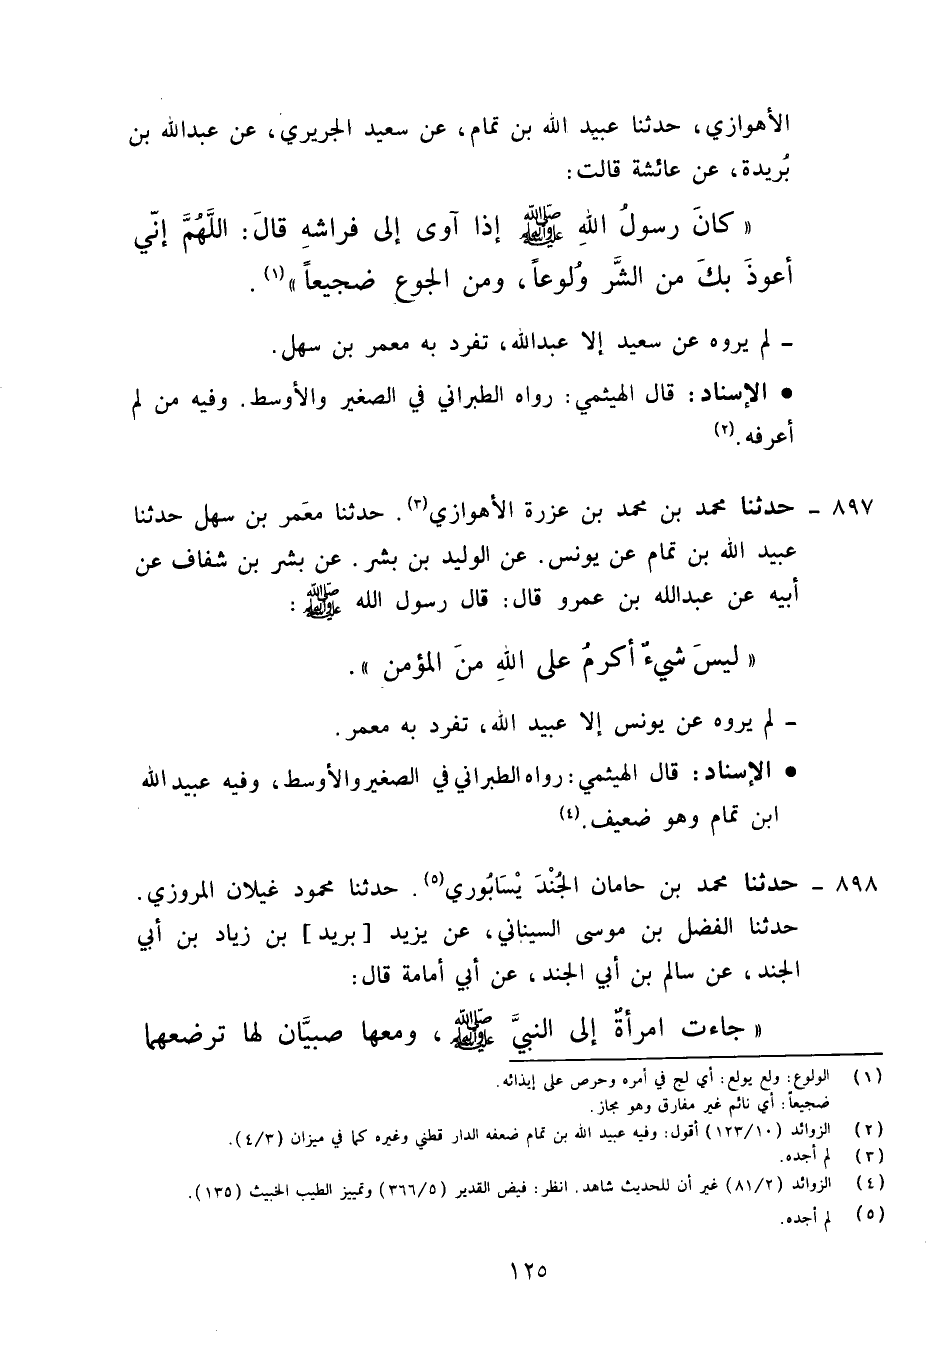 الأهوازي، حدثنا عبيد الله بن تمام، عن سعيد الجريري، عن عبدالله بن
بُريدة، عن عائشة قالت:
« كانَ رسولُ اللهِ ﷺ إذا آوى إلى فراشهِ قالَ: اللَّهُمَّ إنّي
أعوذَ بكَ من الشَّر وُلوعاً، ومن الجوع ضجيعاً »(١).
ـ لم يروه عن سعيد إلا عبدالله، تفرد به معمر بن سهل.
● الإسناد: قال الهيثمي: رواه الطبراني في الصغير والأوسط. وفيه من لم
أعرفه.(٢)
٨٩٧ ـ حدثنا محمد بن محمد بن عزرة الأهوازي(٣). حدثنا معَمر بن سهل حدثنا
عبيد الله بن تمام عن يونس. عن الوليد بن بشر. عن بشر بن شفاف عن
أبيه عن عبدالله بن عمرو قال: قال رسول الله ﷺ:
« ليسَ شيءٌ أكرمُ على اللهِ منَ المؤمن ».
ـ لم يروه عن يونس إلا عبيد الله، تفرد به معمر.
● الإسناد: قال الهيثمي: رواه الطبراني في الصغير والأوسط، وفيه عبيد الله
ابن تمام وهو ضعيف.(٤)
٨٩٨ ـ حدثنا محمد بن حامان الجُنْدَ يْسَابُوري(٥). حدثنا محمود غيلان المروزي.
حدثنا الفضل بن موسى السيناني، عن يزيد [بريد] بن زياد بن أبي
الجند، عن سالم بن أبي الجند، عن أبي أمامة قال:
« جاءت امرأةٌ إلى النبيَّ ﷺ، ومعها صبيَّان لها ترضعهما
(١) الولوع: ولع يولع: أي لج في أمره وحرص على إيذائه.
ضجيعاً: أي نائم غير مفارق وهو مجاز.
(٢) الزوائد (١٢٣/١٠) أقول: وفيه عبيد الله بن تمام ضعفه الدار قطني وغيره كما في ميزان (٤/٣).
(٣) لم أجده.
(٤) الزوائد (٨١/٢) غير أن للحديث شاهد. انظر: فيض القدير (٣٦٦/٥) وتمييز الطيب الخبيث (١٣٥).
(٥) لم أجده.
١٢٥